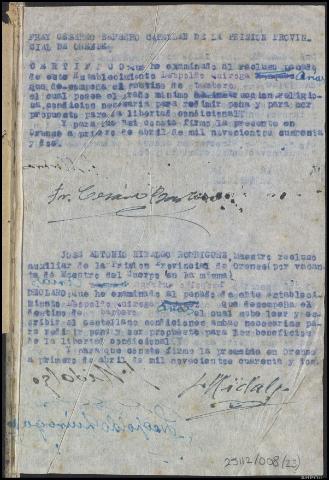 FRAY CESAREO CAPELLAN DE LA PRISION PROVIN-
CIAL DE ORENSE.
CERTIFICO: que he examinado al recluso penado
de este establecimiento Leopoldo Quiroga
que desempeña el destino de barbero
el cual posee el grado minimo de instruccion religio-
sa, condicion necesaria para redimir pena y para ser
propuesto para la libertad condicional.
Y para que asi conste firmo la presente en
Orense a primero de abril de mil novecientos cuarenta
y dos.
Fr. Cesareo
JOSE ANTONIO HIDALGO RODRIGUEZ, Maestro recluso
auxiliar de la Prision Provincial de Orense, por vacan
te de Maestro del Cuerpo en la misma,
DECLARO, que he examinado al penado de este estableci-
miento Leopoldo Quiroga que desempeña el
destino de barbero el cual sabe leer y es-
cribir el castellano condiciones ambas necesarias pa-
ra redimir pena y ser propuesto para los beneficios
de la libertad condicional.
Y para que conste firmo la presente en Orense
a primero de abril de mil novecientos cuarenta y dos.
J. Hidalgo
J. Hidalgo
Leopoldo Quiroga
25112/008 (23)